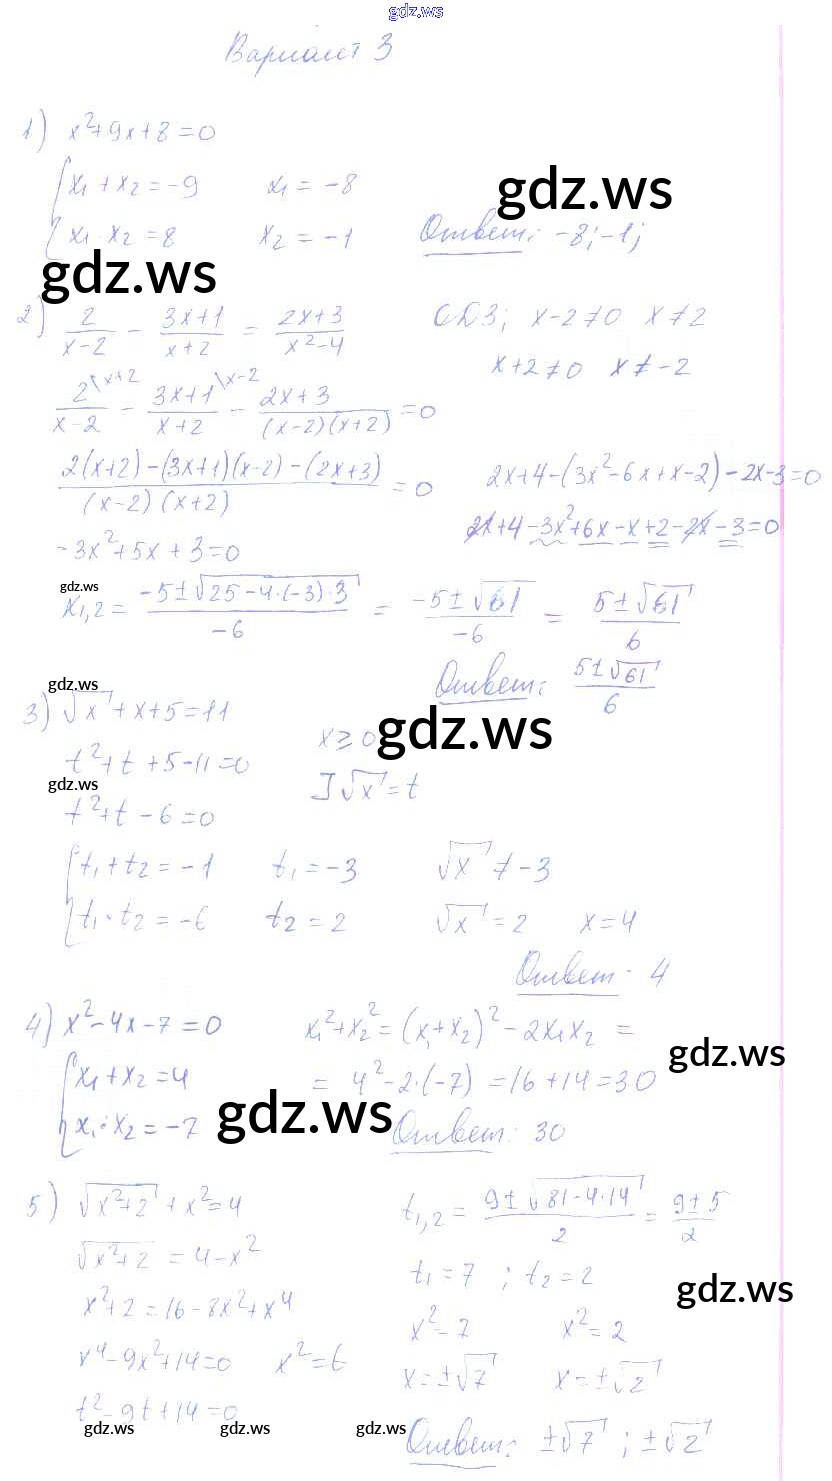 gdz.ws
Вариант 3
1) x²+9x+8=0
x₁+x₂=-9 x₁=-8
x₁·x₂=8 x₂=-1 Ответ: -8; -1;
gdz.ws
gdz.ws
2) 2/(x-2) - (3x+1)/(x+2) = (2x+3)/(x²-4) ОДЗ; x-2≠0 x≠2
x+2≠0 x≠-2
2\x+2/(x-2) - (3x+1)\x-2/(x+2) - (2x+3)/((x-2)(x+2)) =0
(2(x+2)-(3x+1)(x-2)-(2x+3))/((x-2)(x+2)) =0 2x+4-(3x²-6x+x-2)-2x-3=0
2x+4-3x²+6x-x+2-2x-3=0
-3x²+5x+3=0
gdz.ws
x₁,₂ = (-5±√(25-4·(-3)·3))/(-6) = (-5±√61)/(-6) = (5±√61)/6
Ответ: (5±√61)/6
gdz.ws
3) √x+x+5=11 x≥0
gdz.ws
t²+t+5-11=0 ]√x=t
gdz.ws
t²+t-6=0
t₁+t₂=-1 t₁=-3 √x≠-3
t₁·t₂=-6 t₂=2 √x=2 x=4
Ответ: 4
4) x²-4x-7=0 x₁²+x₂²=(x₁+x₂)²-2x₁x₂=
gdz.ws
x₁+x₂=4 =4²-2·(-7)=16+14=30
gdz.ws
x₁·x₂=-7 Ответ: 30
5) √(x²+2)+x²=4 t₁,₂ = (9±√(81-4·14))/2 = (9±5)/2
√(x²+2)=4-x² t₁=7; t₂=2
gdz.ws
x²+2=16-8x²+x⁴ x²=7 x²=2
x⁴-9x²+14=0 x²=t x=±√7 x=±√2
t²-9t+14=0
gdz.ws gdz.ws gdz.ws
Ответ: ±√7; ±√2